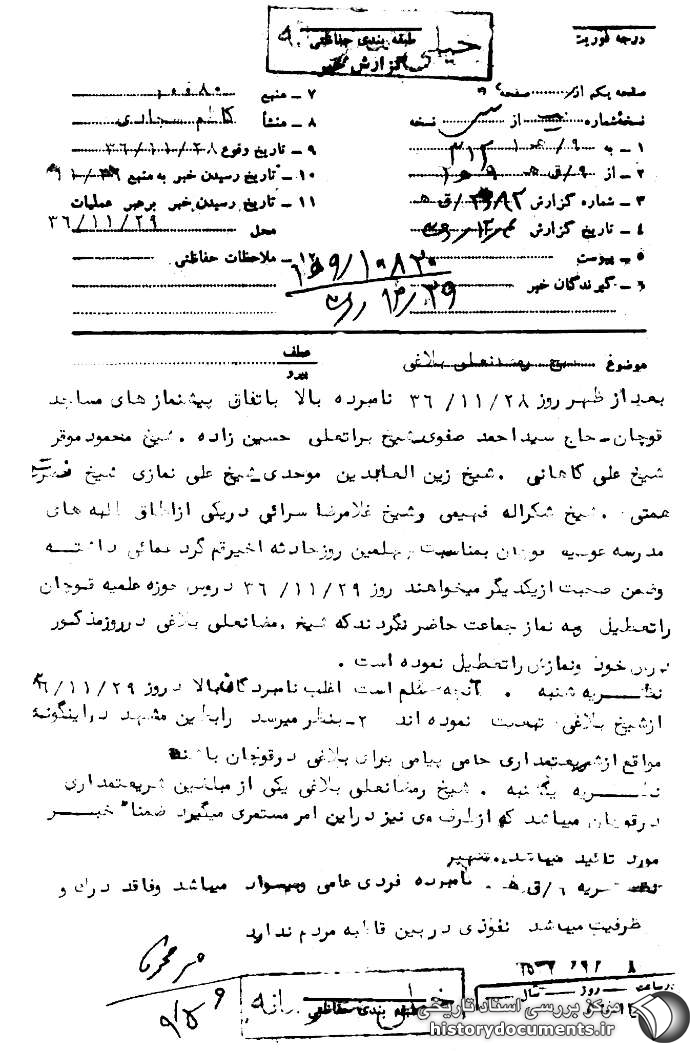 درجه فوریت
خیلی
طبقه بندی حفاظتی
گزارش خبر
صفحه یکم از صفحه
نسخه شماره از نسخه
۱ ـ به
۳۱۲
۲ ـ از ۹/ق ه
۳ ـ شماره گزارش
۴ ـ تاریخ گزارش
۵ ـ پیوست
۶ ـ گیرندگان خبر
۷ ـ منبع
۸ ـ منشأ کاظم سجادی
۹ ـ تاریخ وقوع ۳۶/۱۱/۲۸
۱۰ ـ تاریخ رسیدن خبر به منبع
۱۱ ـ تاریخ رسیدن خبر برهبر عملیات
محل ۳۶/۱۱/۲۹
۱۲ ـ ملاحظات حفاظتی
موضوع شیخ رمضانعلی بلاغی
عطف
پیرو
بعد از ظهر روز ۳۶/۱۱/۲۸ نامبرده بالا باتفاق پیشنمازهای مساجد
قوچان ـ حاج سید احمد صفوی شیخ براتعلی حسین زاده . شیخ محمود موقر
شیخ علی کاهانی . شیخ زین العابدین موحدی ـ شیخ علی نمازی شیخ
همتی . شیخ شکراله فهیمی و شیخ غلامرضا سرائی در یکی از اطاق های
مدرسه عوضیه قوچان بمناسبت چهلمین روز حادثه اخیر قم گرد همائی داشته
وضمن صحبت از یکدیگر میخواهند روز ۳۶/۱۱/۲۹ دروس حوزه علمیه قوچان
را تعطیل و به نماز جماعت حاضر نگردند که شیخ رمضانعلی بلاغی در روز مذکور
درس خود و نمازش را تعطیل نموده است .
نظریه شنبه . آنچه مسلم است اغلب نامبردگان بالا در روز ۳۶/۱۱/۲۹
از شیخ بلاغی تبعیت نموده اند ۲ ـ بنظر میرسد رابطین مشهد در اینگونه
مواقع از شریعتمداری حامی پیامی برای بلاغی در قوچان باشند
نظریه یکشنبه . شیخ رمضانعلی بلاغی یکی از مبلغین شریعتمداری
در قوچان میباشد که از طرف وی نیز در این امر مستمری میگیرد ضمنا" خبر
مورد تائید میباشد. شهیر
نظریه ۶/ق ه . نامبرده فردی عامی و بیسواد میباشد و فاقد درک و
ظرفیت میباشد نفوذی در بین قاطبه مردم ندارد
ساعت روز سال
خیلی محرمانه
طبقه بندی حفاظتی
مرکز بررسی اسناد تاریخی
historydocuments.ir